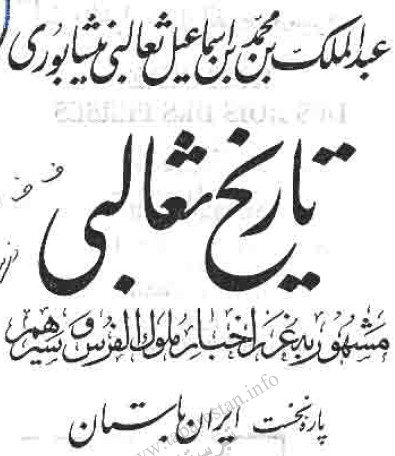 عبدالملک بن محمد بن اسماعیل ثعالبی نیشابوری
تاریخ ثعالبی
مشهور به غرر اخبار ملوک الفرس و سیرهم
پارهٔ نخست ایران باستان
www.tabarestan.info